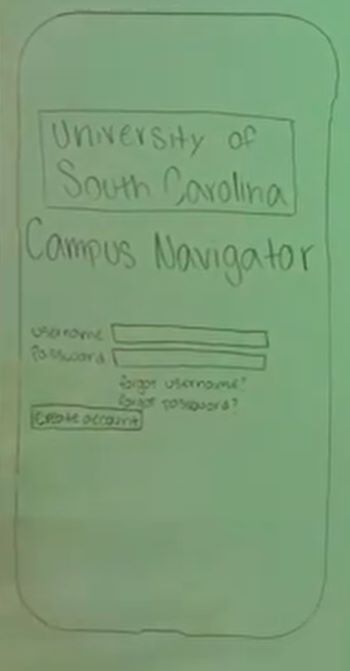 University of
South Carolina
Campus Navigator
username
Password
forgot username?
forgot password?
Create account